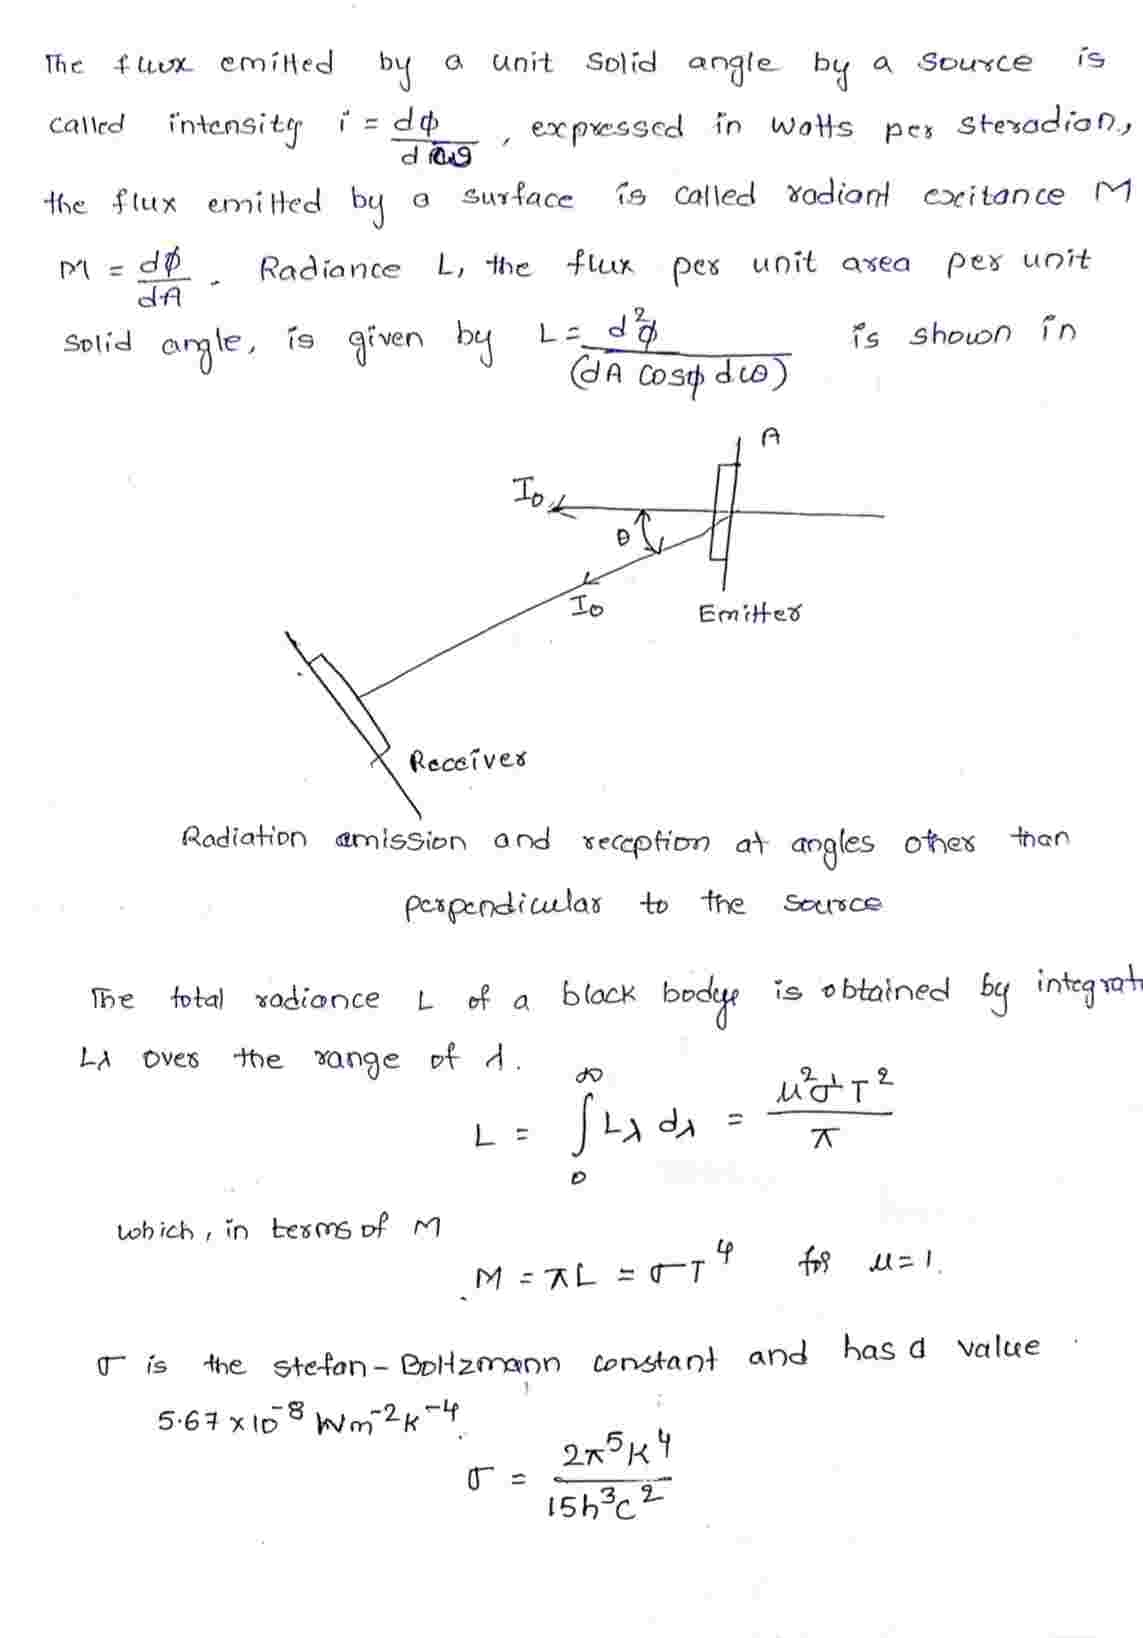 The flux emitted by a unit solid angle by a source is
called intensity i = dϕ/dω, expressed in Watts per steradian,
the flux emitted by a surface is called radiant excitance M
M = dϕ/dA. Radiance L, the flux per unit area per unit
solid angle, is given by L = d²ϕ/(dA cosϕ dω) is shown in
A
I₀
θ
I₀
Emitter
Receiver
Radiation emission and reception at angles other than
perpendicular to the source
The total radiance L of a black body is obtained by integrat
Lλ over the range of λ.
L = ∫₀^∞ Lλ dλ = μ²σT²/π
which, in terms of M
M = πL = σT⁴ for μ=1.
σ is the stefan-Boltzmann constant and has a value
5.67 x 10⁻⁸ Wm⁻²K⁻⁴.
σ = 2π⁵K⁴/15h³c²